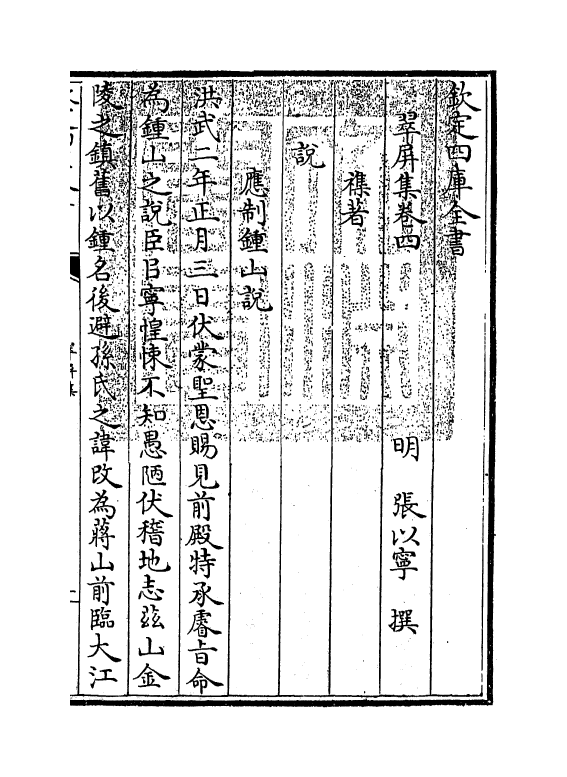 欽定四庫全書
翠屏集卷四
明 張以寧 撰
襍著
說
應制鍾山說
洪武二年正月三日伏蒙聖恩賜見前殿特承睿旨命
為鍾山之說臣㠯寧惶悚不知愚陋伏稽地志茲山金
陵之鎮舊以鍾名後避孫氏之諱改為蔣山前臨大江